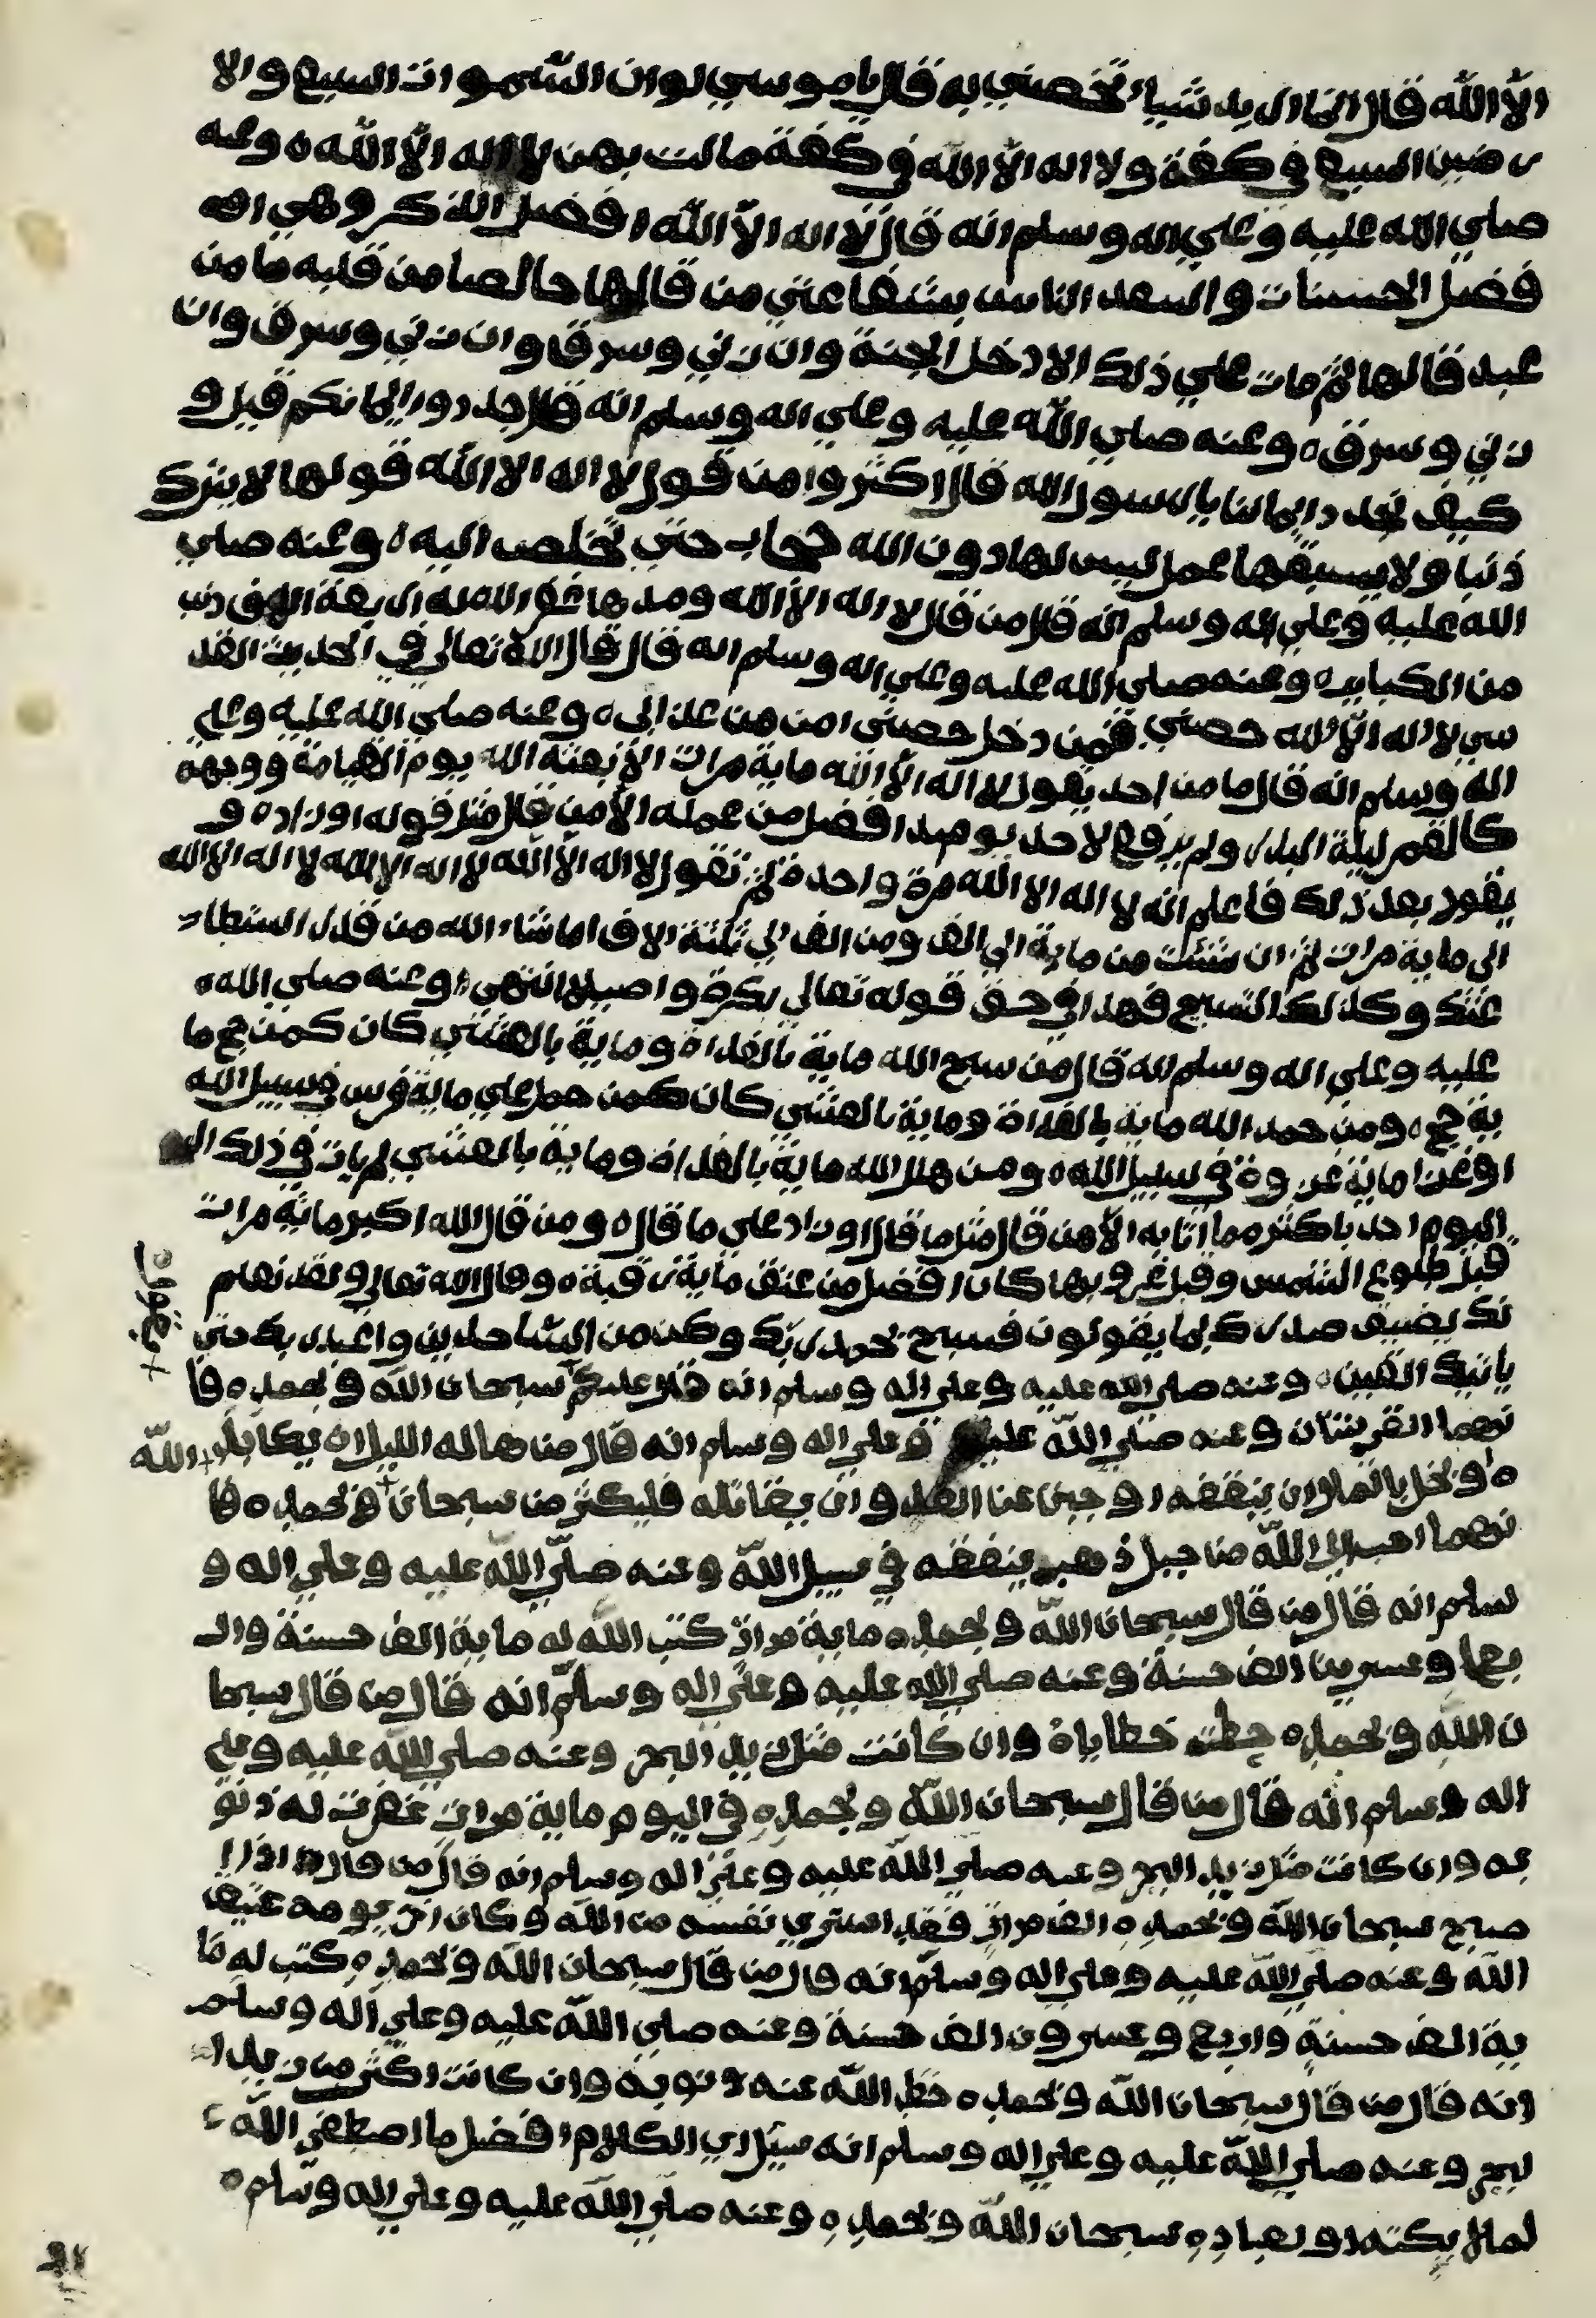 الاّ اللّه قال انما اريد شيا تخصني به قال يا موسي لو ان السّموات السبع والا
رضين السبع في كفة ولا اله الاّ اللّه في كفة مالت بهن لا اله الاّ اللّه ه وعنه
صلي اللّه عليه وعلي اله وسلم انه قال لا اله الاّ اللّه افضل الذكر وهي ا
فضل الحسنات واسعد الناس بشفاعتي من قالها خالصا من قلبه ما من
عبد قالها ثم مات علي ذلك الا دخل الجنة وان زني وسرق وان زني وسرق وان
زني وسرق ه وعنه صلي اللّه عليه وعلي اله وسلم انه قال جددوا ايمانكم قيل و
كيف نجدد ايماننا يا رسول الله قال اكثروا من قول لا اله الا اللّه قولها لا يترك
ذنبا ولا يسبقها عمل ليس لها دون الله حجاب حتي تخلص اليه ه وعنه صلي
الله عليه وعلي اله وسلم انه قال من قال لا اله الا اللّه ومدها غفر الله له اربعة الاف ذنب
من الكباير ه وعنه صلي الله عليه وعلي اله وسلم انه قال قال اللّه تعالي في الحديث القد
سي لا اله الاّ اللّه حصني فمن دخل حصني امن من عذابي ه وعنه صلي اللّه عليه وعلي
اله وسلم انه قال ما من احد يقول لا اله الاّ اللّه ماية مرات الا بعثه اللّه يوم القيامة ووجهه
كالقمر ليلة البدر ولم يرفع لاحد يوميد افضل من عمله الا من قال مثل قوله او زاده و
يقول بعد ذلك فاعلم انه لا اله الا اللّه مرة واحدة ثم تقول لا اله الاّ اللّه لا اله الا اللّه لا اله الا الله
الي ماية مرات ثم ان شئت من ماية الي الف ومن الف الي ثلثة الاف اما شاء الله من قدر استطا
عتك وكذلك التسبيح فهذا في حق قوله تعالي بكرة واصيلا انتهي ه وعنه صلي الله
عليه وعلي اله وسلم انه قال من سبح الله ماية بالغداة وماية بالعشي كان كمن حج ما
ية حج ه ومن حمد الله ماية بالغداة وماية بالعشي كان كمن حمل علي ماية فرس في سبيل الله
او غزا ماية غزوة في سبيل اللّه ه ومن هلل الله ماية بالغداة وماية بالعشي لم يات في ذلك
اليوم احد باكثر مما اتا به الاّ من قال مثل ما قال او زاد علي ما قال ه ومن قال الله اكبر ماية مرات
قبل طلوع الشمس وقبل غروبها كان افضل من عتق ماية رقبة ه وقال الله تعالي ولقد نعلم
انك يضيق صدرك بما يقولون فسبح بحمد ربك وكن من السّاجدين واعبد ربك حتي
ياتيك اليقين ه وعنه صلي اللّه عليه وعلي اله وسلم انه قال عليكم سبحان اللّه وبحمده فا
نهما القرينتان وعنه صلّي اللّه عليه وعلي اله وسلم انه قال من هاله الليل ان يكابد
ه او بخل بالمال ان ينفقه او جبن عن العدو ان يقاتله فليكثر من سبحان اللّه وبحمده فا
نهما احب الي اللّه من جبل ذهب ينفقه في سبيل اللّه وعنه صلّي اللّه عليه وعلي اله و
سلم انه قال من قال سبحان اللّه وبحمده ماية مرات كتب اللّه له ماية الف حسنة وار
بعا وعسرين الف حسنة وعنه صلي اللّه عليه وعلي اله وسلم انه قال من قال سبحا
ن اللّه وبحمده حطت خطاياه وان كانت مثل زبد البحر وعنه صلي اللّه عليه وعلي
اله وسلم انه قال من قال سبحان اللّه وبحمده في اليوم ماية مرات غفرت له ذنو
به وان كانت مثل زبد البحر وعنه صلي اللّه عليه وعلي اله وسلم انه قال من قال اذا ا
صبح سبحان اللّه وبحمده الف مرات فقد اشتري نفسه من اللّه وكان اخر يومه عتيق
اللّه وعنه صلي اللّه عليه وعلي اله وسلم انه قال من قال سبحان اللّه وبحمده كتب له ما
ية الف حسنة واربع وعسرون الف حسنة وعنه صلي اللّه عليه وعلي اله وسلم
انه قال من قال سبحان اللّه وبحمده حط اللّه عنه ذنوبه وان كانت اكثر من زبد ا
لبحر وعنه صلي اللّه عليه وعلي اله وسلم انه سئل اي الكلام افضل ما اصطفي اللّه
لملايكته او لعباده سبحان اللّه وبحمده ه وعنه صلّي اللّه عليه وعلي اله وسلم ه